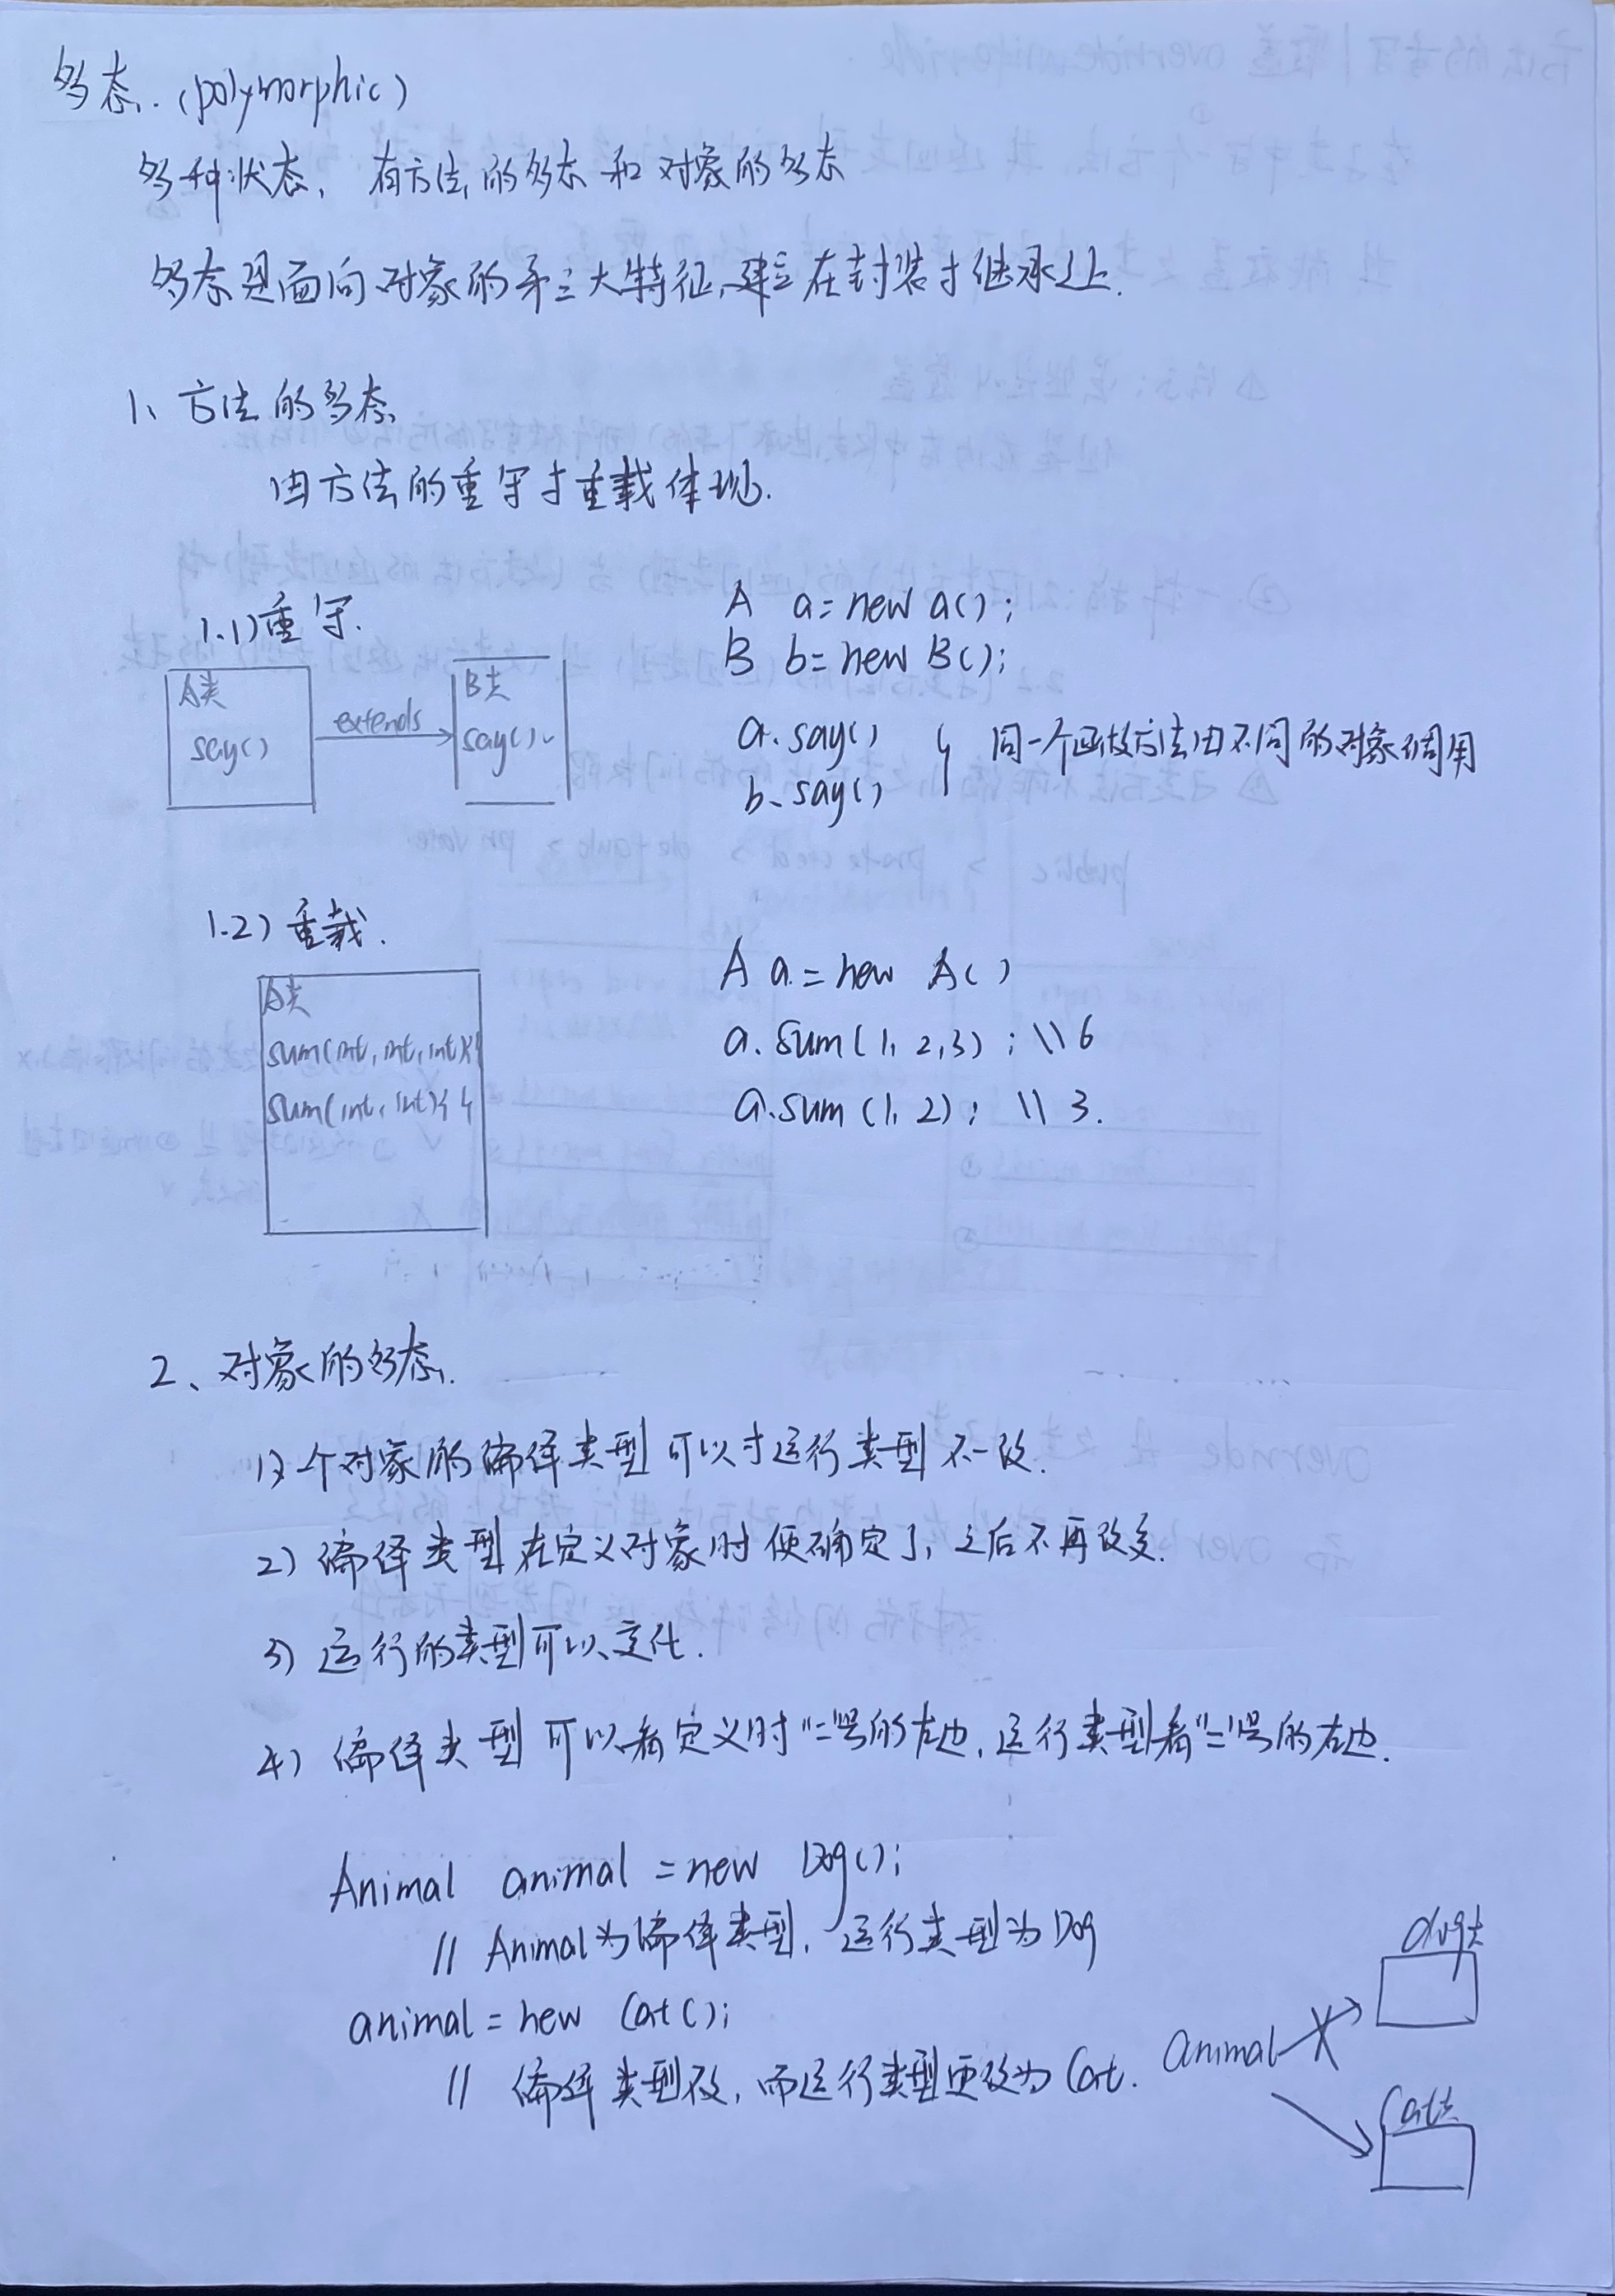 多态.(polymorphic)
多种状态,有方法的多态和对象的多态
多态是面向对象的第三大特征,建立在封装于继承之上.
1、方法的多态
由方法的重写于重载体现.
1.1)重写.
A类
say()
extends
B类
say()
A a=new a();
B b=new B();
a.say()
b.say()
同一个方法由不同的对象调用
1.2)重载.
A类
sum(int,int,int){}
sum(int,int){}
A a=new A()
a.sum(1,2,3);\\6
a.sum(1,2);\\3.
2、对象的多态.
1)一个对象的编译类型可以于运行类型不一致.
2)编译类型在定义对象时便确定了,之后不再改变.
3)运行的类型可以变化.
4)编译类型可以看定义时"="号的左边,运行类型看"="号的右边.
Animal animal=new Dog();
//Animal为编译类型,运行类型为Dog
animal=new Cat();
//编译类型不改,而运行类型更改为Cat.
animal
dog类
Cat类